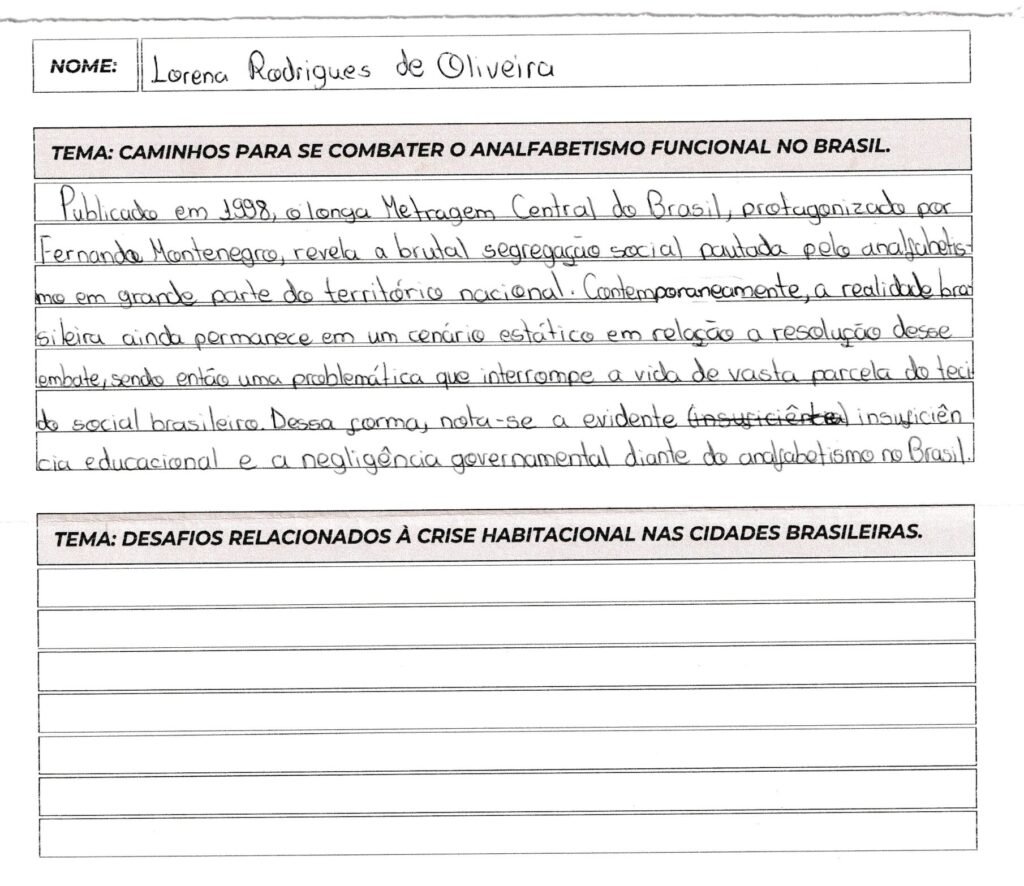 NOME: Lorena Rodrigues de Oliveira
TEMA: CAMINHOS PARA SE COMBATER O ANALFABETISMO FUNCIONAL NO BRASIL.
Publicado em 1998, o longa Metragem Central do Brasil, protagonizado por
Fernanda Montenegro, revela a brutal segregação social pautada pelo analfabetis-
mo em grande parte do território nacional. Contemporaneamente, a realidade bra
sileira ainda permanece em um cenário estático em relação a resolução desse
embate, sendo então uma problemática que interrompe a vida de vasta parcela do teci
do social brasileiro. Dessa forma, nota-se a evidente (insuficiênte) insuficiên
cia educacional e a negligência governamental diante do analfabetismo no Brasil.
TEMA: DESAFIOS RELACIONADOS À CRISE HABITACIONAL NAS CIDADES BRASILEIRAS.